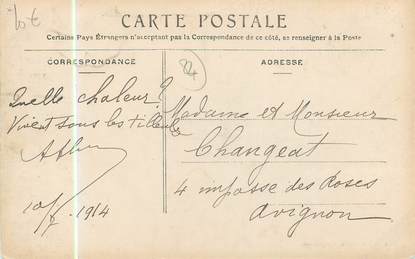 CARTE POSTALE
Certains Pays Étrangers n'acceptant pas la Correspondance de ce côté, se renseigner à la Poste
CORRESPONDANCE
ADRESSE
Quelle chaleur?
Vivent sous les tilleuls
10/8 1914
Madame et Monsieur
Changeat
4 impasse des Roses
Avignon